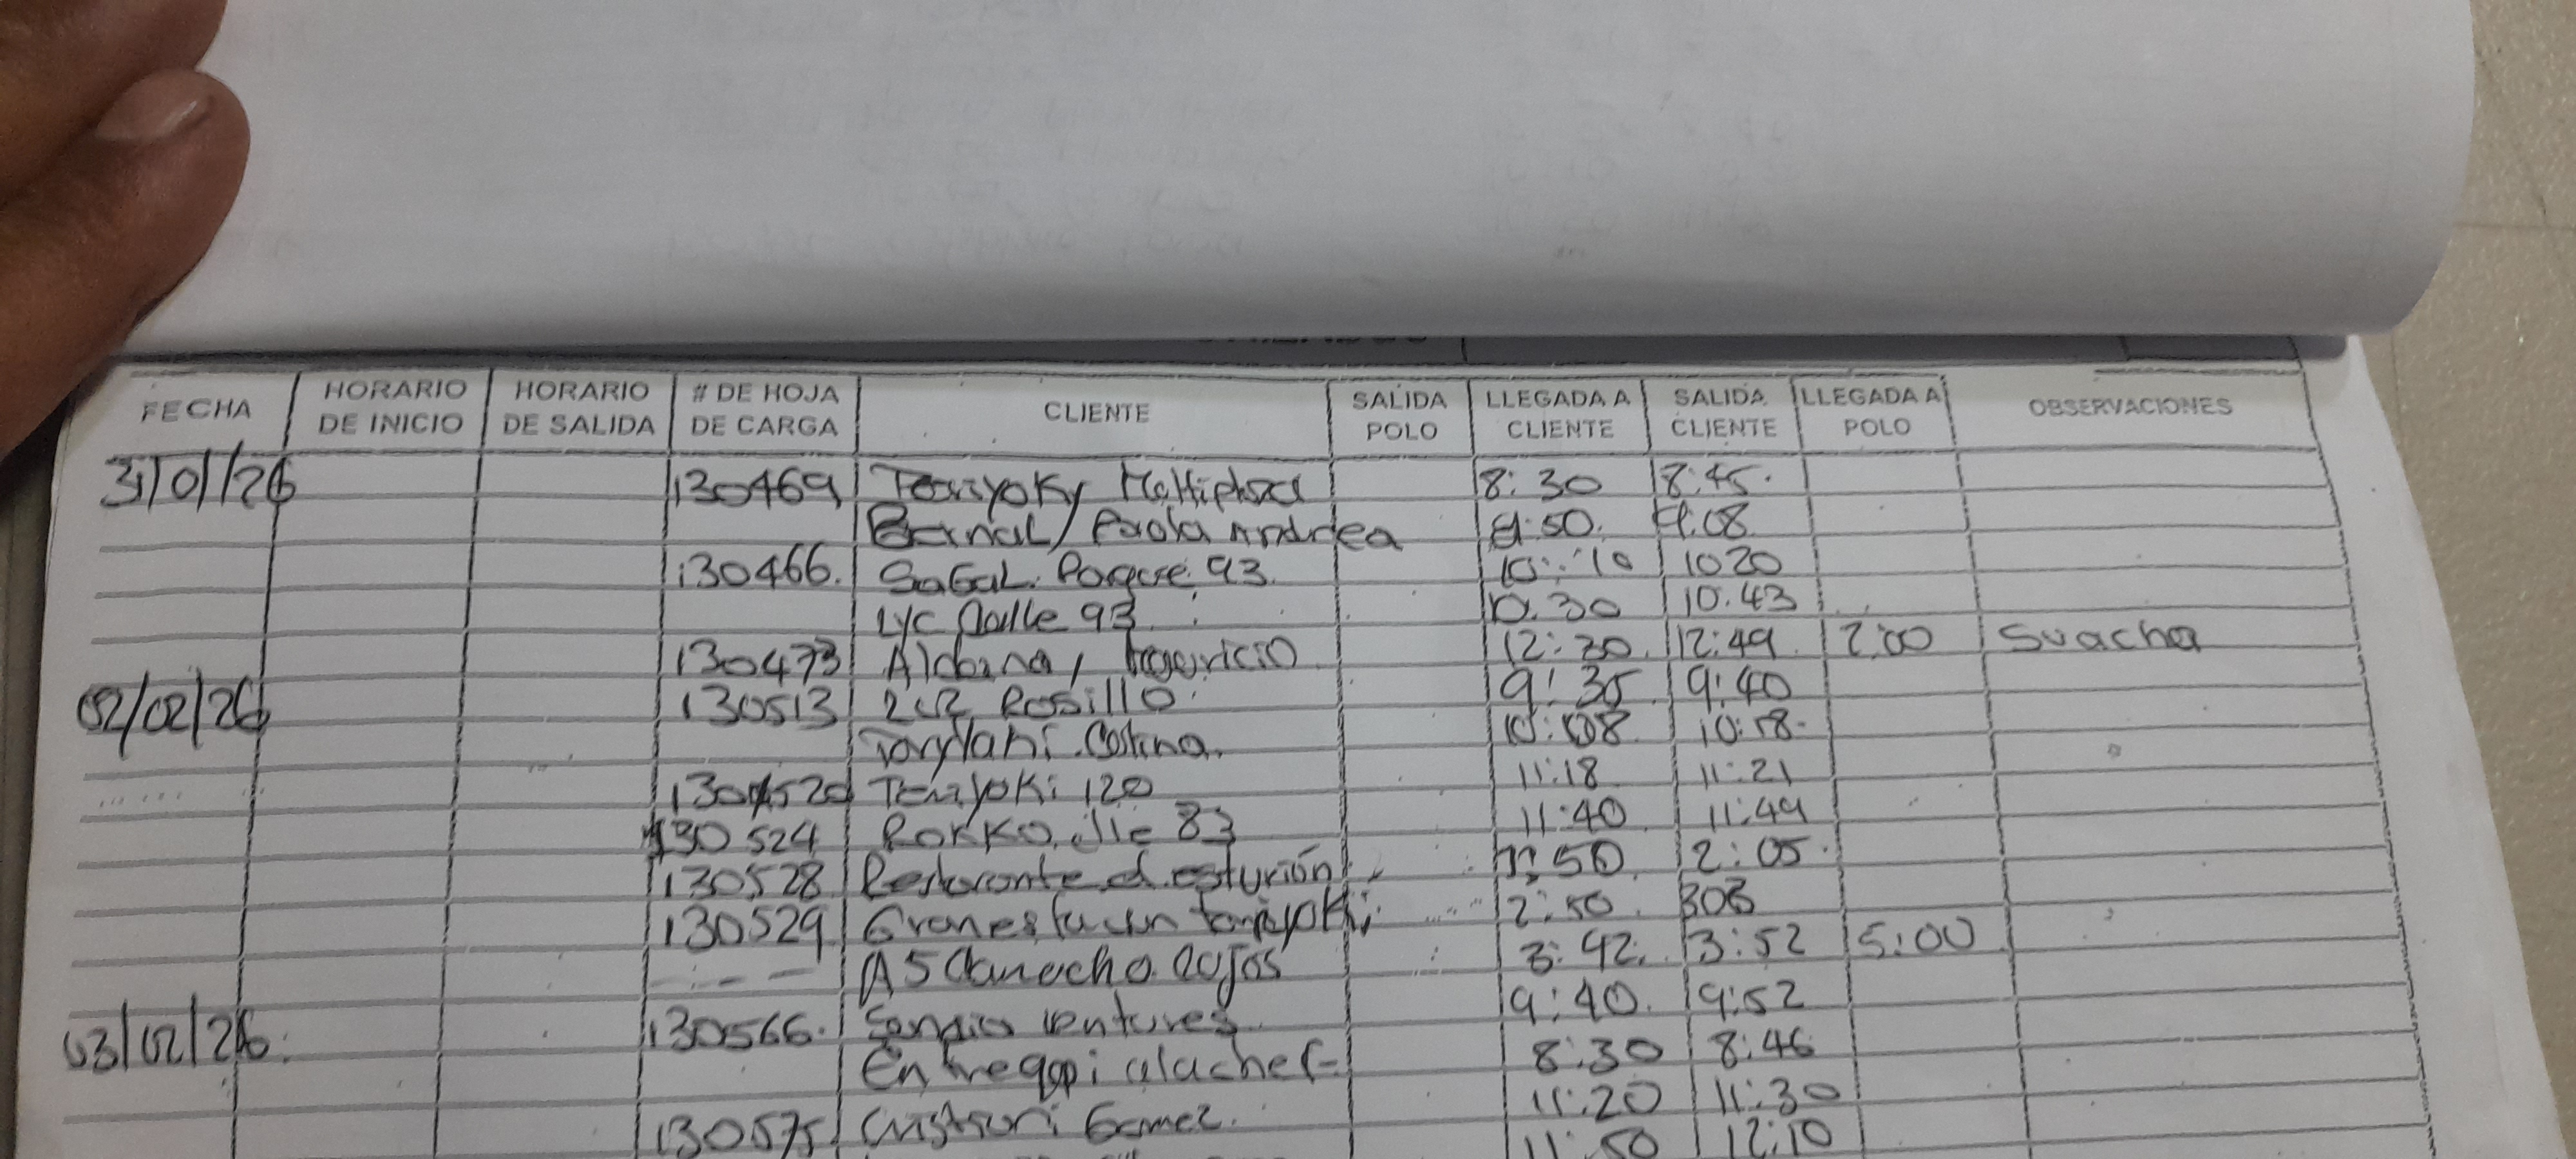 FECHA HORARIO DE INICIO HORARIO DE SALIDA # DE HOJA DE CARGA CLIENTE SALIDA POLO LLEGADA A CLIENTE SALIDA CLIENTE LLEGADA A POLO OBSERVACIONES
31/01/26 130469 8:30 8:45
Bernal / Paola Andrea :50 9:08
130466. SaGaL Parque 93 10:10 1020
Lyc Calle 93 10:30 10:43
130473 Aldana, 12:30 12:49 2:00 Suacha
02/02/26 130513 Rosillo 9:35 9:40
10:08 10:18
130520 Teriyoki 120 11:18 11:21
130524 Rokko 83 11:40 11:49
130528 Restorante el esturión :50 2:05
130529 Gran 2:50 308
A5 3:42 3:52 5:00
03/02/26 130566 ventures 9:40 9:52
8:30 8:46
130575 Gomez 11:20 11:30
11:50 12:10